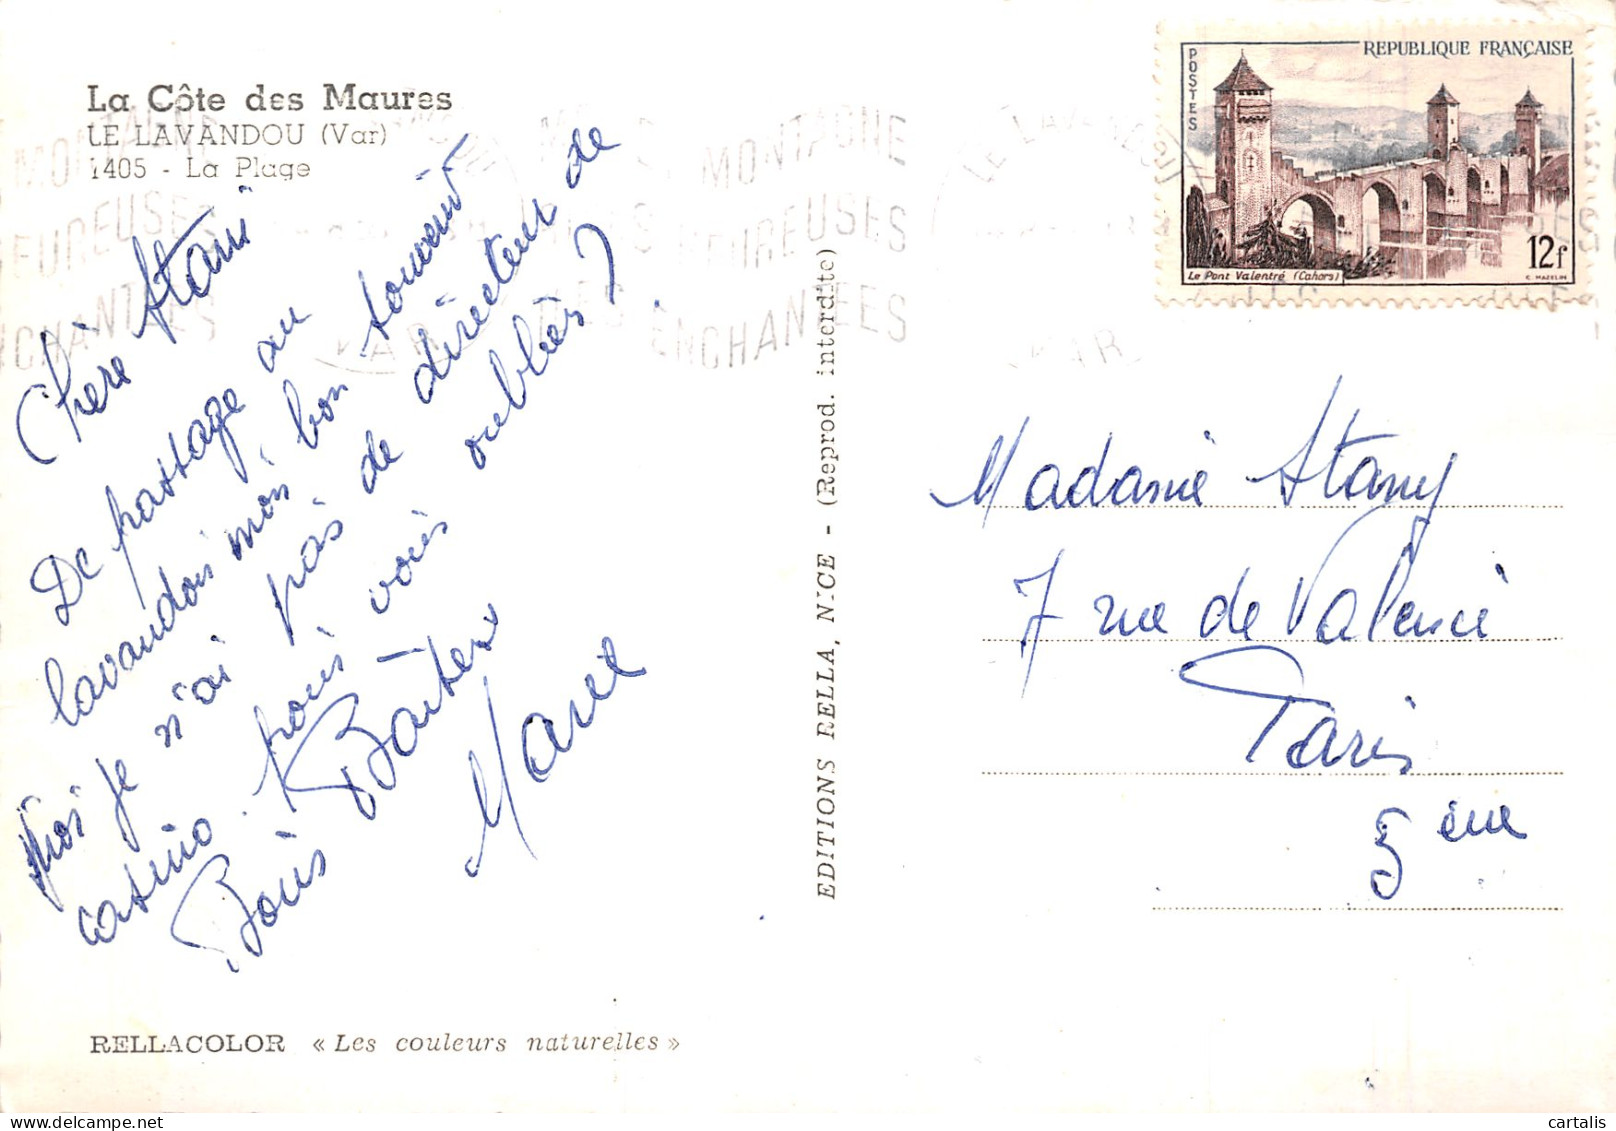 La Côte des Maures
LE LAVANDOU (Var)
1405 - La Plage
Chère Stani
De passage au
lavandou mon bon souvenir
Moi je n'ai pas de directeur de
casino pour vous oubliés ?
Bons Baisers
Marie
RELLACOLOR « Les couleurs naturelles »
EDITIONS RELLA, NICE - (Reprod. interdite)
REPUBLIQUE FRANÇAISE
POSTES
12f
Le Pont Valentré (Cahors)
C. MAZELIN
LE LAVANDOU
VAR
MONTAGNE
HEUREUSES
ENCHANTÉES
Madame Stany
7 rue de Valence
Paris
5 ème
cartalis